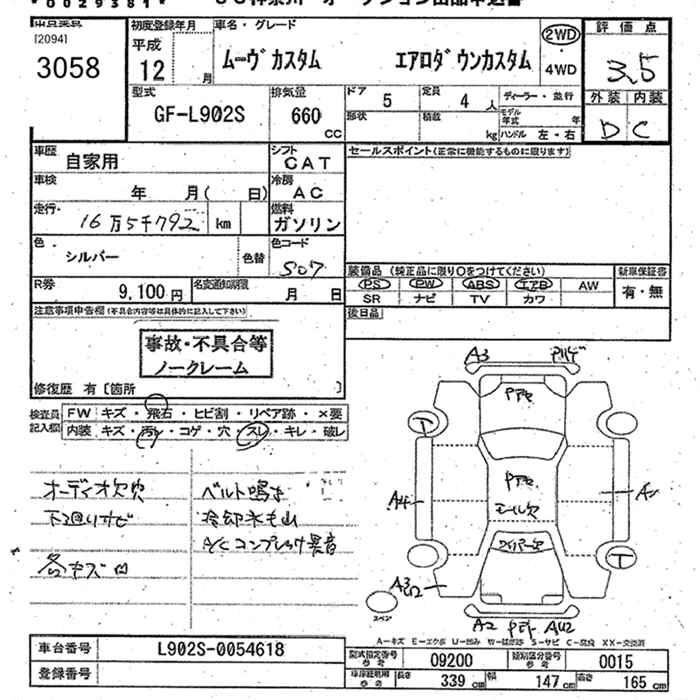 *0029381*
[2094]
3058
初度登録年月
平成
12
月
車名・グレード
ムーヴカスタム エアロダウンカスタム
2WD
・
4WD
評価点
3.5
外装 内装
D C
型式
GF-L902S
排気量
660
CC
ドア 5
定員 4 人
ディーラー・並行
形状
積載 kg
モデル年式 年
ハンドル 左・右
車歴
自家用
シフト
CAT
セールスポイント(正常に機能するものに限ります)
車検
年 月( 日)
冷房
AC
走行
16万5千792 km
燃料
ガソリン
色
シルバー
色替
色コード
S07
装備品(純正品に限り○をつけてください)
新車保証書
PS PW ABS エアB AW
有・無
SR ナビ TV カワ
R券
9,100円
名変通知期限
月 日
後日品
注意事項申告欄(不具合内容等は具体的に記入して下さい)
事故・不具合等
ノークレーム
修復歴 有[箇所 ]
検査員記入欄
FW キズ・飛石・ヒビ割・リペア跡・×要
内装 キズ・汚レ・コゲ・穴・スレ・キレ・破レ
オーディオ欠穴
下廻りサビ
各キズ凹
ベルト鳴き
冷却水もれ
A/Cコンプレッサ異音
A3
Pアセ
Pアセ
モール欠
ワイパー欠
T
A4
T
スペア
A2
AU2
A-キズ E-エクボ U-凹み W-補修跡 S-サビ C-腐食 XX-交換済
車台番号
L902S-0054618
登録番号
型式指定番号 参考
09200
類別区分番号 参考
0015
長さ 339 cm
幅 147 cm
高さ 165 cm